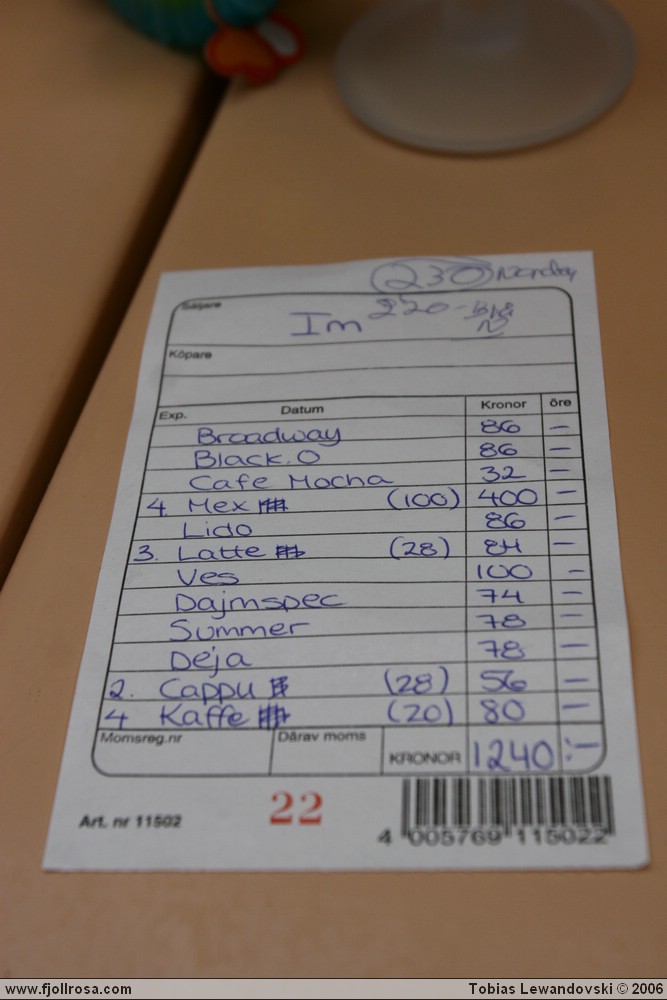 230
Säljare
Im 220-
Köpare
Exp. Datum Kronor öre
Broadway 86 -
Black.O 86 -
Cafe Mocha 32 -
4. Mex (100) 400 -
Lido 86 -
3. Latte (28) 84 -
Ves 100 -
Dajmspec 74 -
Summer 78 -
Deja 78 -
2. Cappu (28) 56 -
4 Kaffe (20) 80 -
Momsreg.nr Därav moms KRONOR 1240:-
Art. nr 11502 22 4 005769 115022
www.fjollrosa.com Tobias Lewandovski © 2006